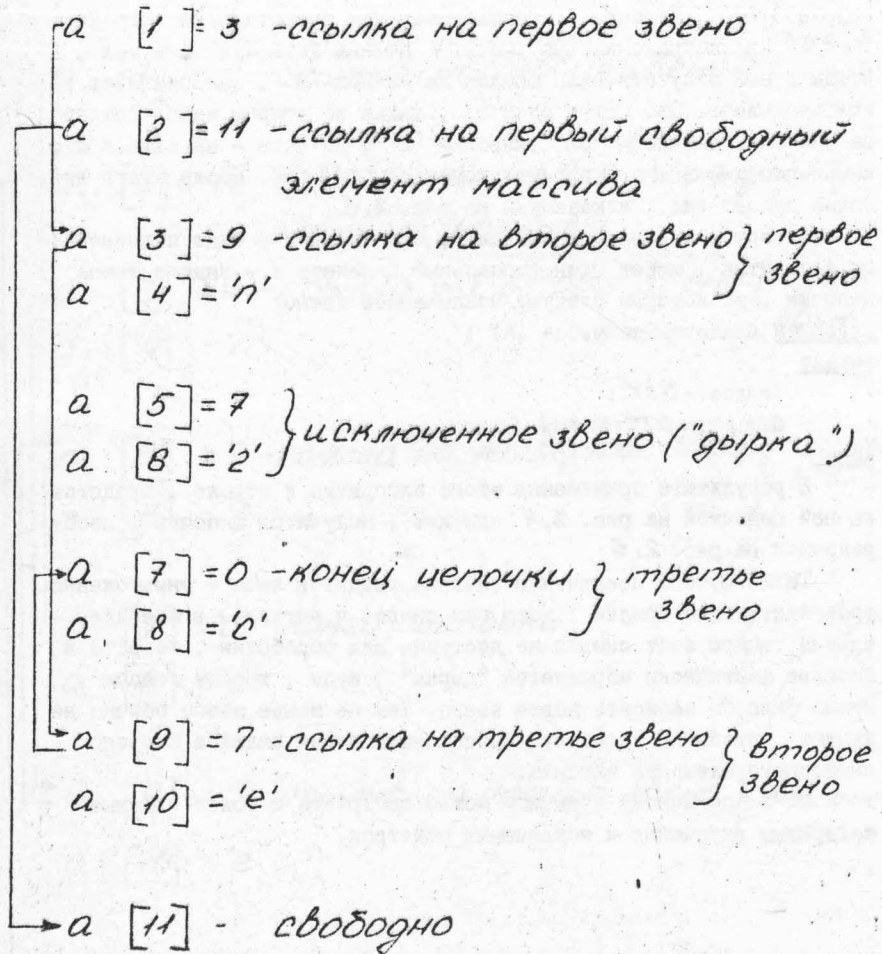 a [1] = 3 - ссылка на первое звено
a [2] = 11 - ссылка на первый свободный
элемент массива
a [3] = 9 - ссылка на второе звено } первое
звено
a [4] = 'п'
a [5] = 7
a [8] = 'г' } исключенное звено ("дырка")
a [7] = 0 - конец цепочки } третье
звено
a [8] = 'с'
a [9] = 7 - ссылка на третье звено } второе
звено
a [10] = 'е'
a [11] - свободно